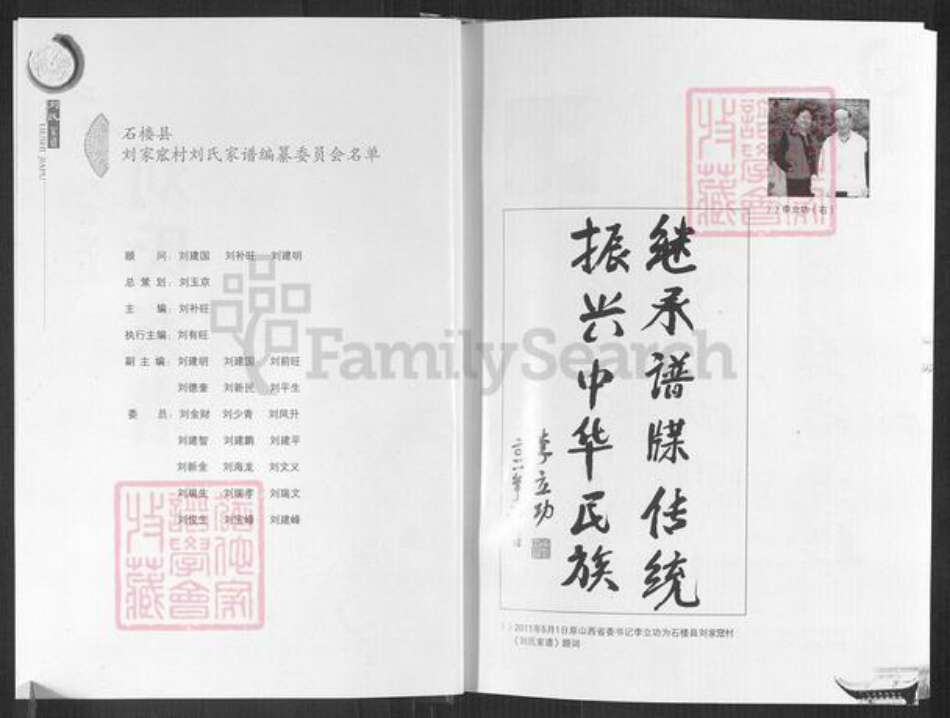 刘氏家谱
石楼县
刘家窊村刘氏家谱编纂委员会名单
顾 问：刘建国 刘补旺 刘建明
总 策 划：刘玉京
主 编：刘补旺
执行主编：刘有旺
副 主 编：刘建明 刘建国 刘前旺
刘德奎 刘新民 刘平生
委 员：刘金财 刘少青 刘凤升
刘建智 刘建鹏 刘建平
刘新全 刘海龙 刘文义
刘瑞生 刘瑞孝 刘瑞文
刘俊生 刘宝峰 刘建峰
FamilySearch
李立功（右）
继承谱牒传统
振兴中华民族
李立功
2011年5月1日原山西省委书记李立功为石楼县刘家窊村
《刘氏家谱》题词